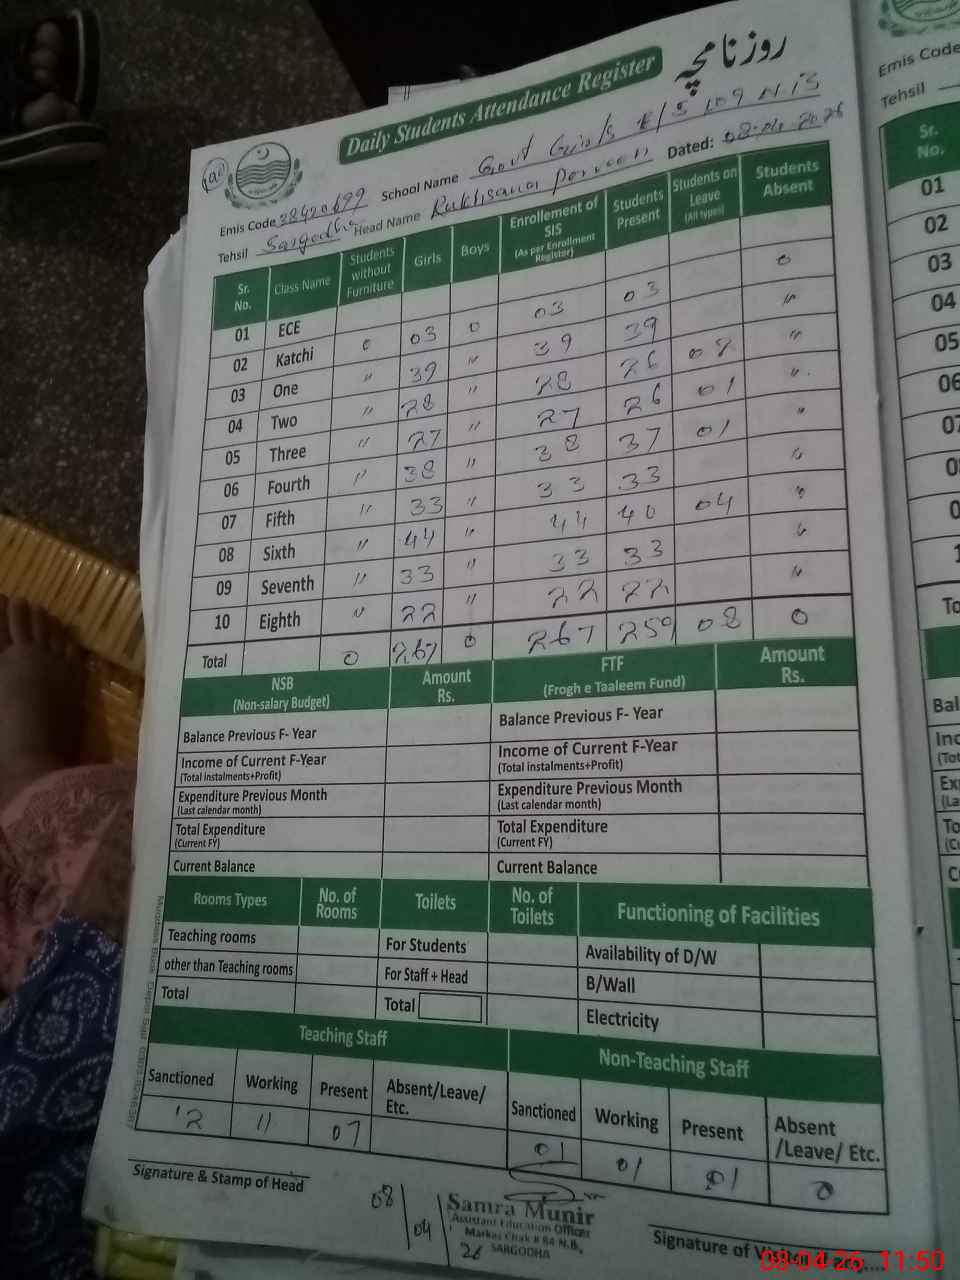 روزنامچہ
Daily Students Attendance Register
Emis Code 38420699 School Name Govt Girls E/S 109 N.B
Tehsil Sargodha Head Name Rukhsana Parveen Dated: 08-04-2026
Sr. No. Class Name Students without Furniture Girls Boys Enrollment of SIS (As per Enrollment Register) Students Present Students on Leave (All types) Students Absent
01 ECE
02 Katchi 0 03 0 03 03 0
03 One " 39 " 39 39 "
04 Two " 28 " 28 26 02 "
05 Three " 27 " 27 26 01 "
06 Fourth " 38 " 38 37 01 "
07 Fifth " 33 " 33 33 "
08 Sixth " 44 " 44 40 04 "
09 Seventh " 33 " 33 33 "
10 Eighth " 22 " 22 22 "
Total 0 267 0 267 259 08 0
NSB (Non-salary Budget) Amount Rs. FTF (Frogh e Taaleem Fund) Amount Rs.
Balance Previous F- Year Balance Previous F- Year
Income of Current F-Year Income of Current F-Year
(Total instalments+Profit) (Total instalments+Profit)
Expenditure Previous Month Expenditure Previous Month
(Last calendar month) (Last calendar month)
Total Expenditure Total Expenditure
(Current FY) (Current FY)
Current Balance Current Balance
Rooms Types No. of Rooms Toilets No. of Toilets Functioning of Facilities
Teaching rooms For Students Availability of D/W
other than Teaching rooms For Staff + Head B/Wall
Total Total Electricity
Teaching Staff Non-Teaching Staff
Sanctioned Working Present Absent/Leave/ Etc. Sanctioned Working Present Absent /Leave/ Etc.
12 11 07 01 01 01 0
Signature & Stamp of Head
08/04/26
Samra Munir
Assistant Education Officer
Markaz Chak # 84 N.B,
SARGODHA
Signature of
08-04-26 11:50
Emis Code
Tehsil
Sr. No.
01
02
03
04
05
06